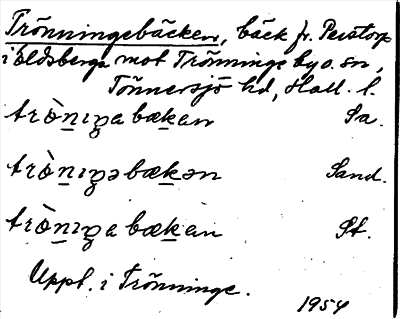 Trönningebäcken, bäck fr. Perstorp
i Eldsberga mot Trönninge by o. sn,
Tönnersjö hd, Hall. l.
trò̀n̲ıŋabæk̲an Sa.
trò̀n̲ıŋəbæk̲ən Sand.
trò̀n̲ıŋabæk̲an St.
Uppt. i Trönninge.
1954